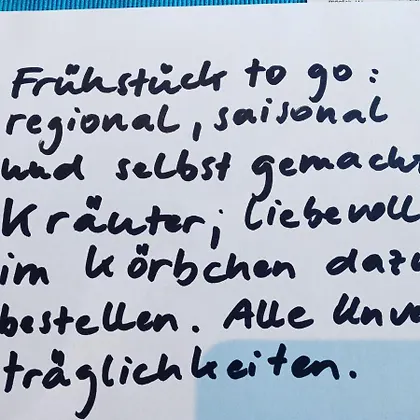 Frühstück to go:
regional, saisonal
und selbst gemacht
Kräuter; liebevoll
im Körbchen dazu
bestellen. Alle Unver
träglichkeiten.